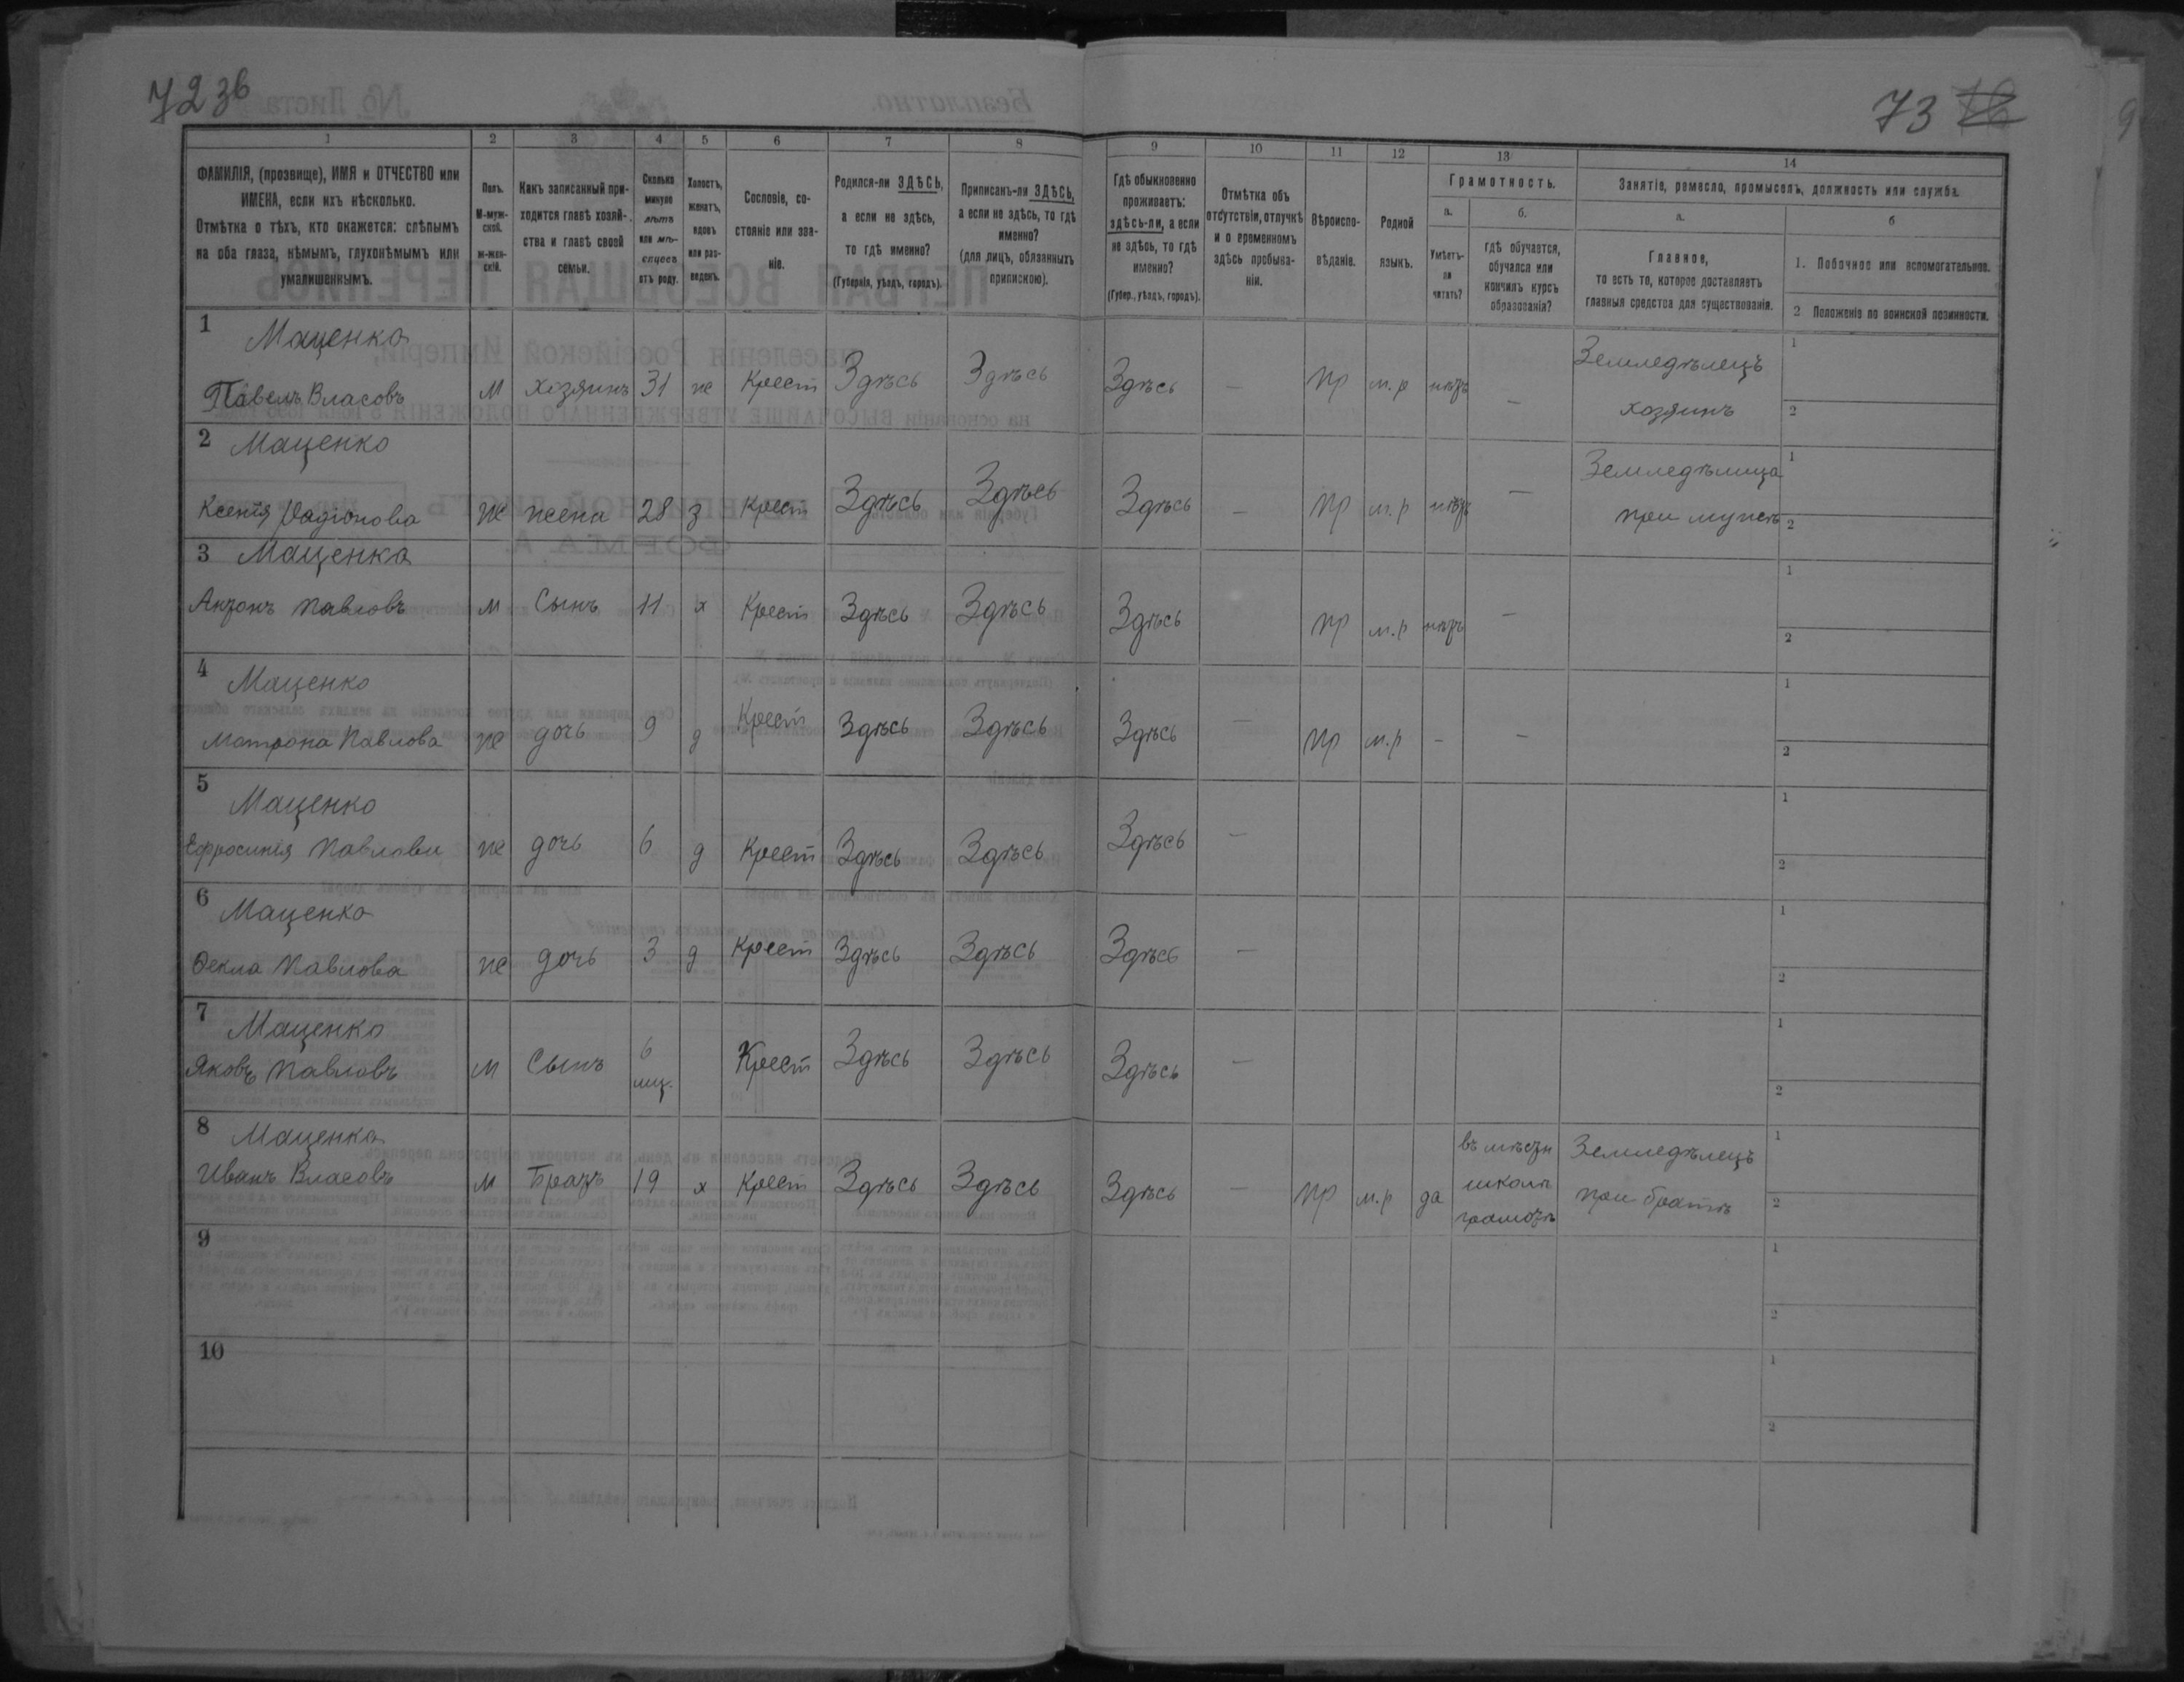 72 зв
73
1
2
3
4
5
6
7
8
9
10
11
12
13
14
ФАМИЛІЯ, (прозвище), ИМЯ и ОТЧЕСТВО или
ИМЕНА, если ихъ нѣсколько.
Отмѣтка о тѣхъ, кто окажется: слѣпымъ
на оба глаза, нѣмымъ, глухонѣмымъ или
умалишеннымъ.
Полъ.
М-муж-
ской.
ж-жен-
скій.
Какъ записанный при-
ходится главѣ хозяй-
ства и главѣ своей
семьи.
Сколько
минуло
лѣтъ
или мѣ-
сяцевъ
отъ роду.
Холостъ,
женатъ,
вдовъ
или раз-
веденъ.
Сословіе, со-
стояніе или зва-
ніе.
Родился-ли ЗДѢСЬ,
а если не здѣсь,
то гдѣ именно?
(Губернія, уѣздъ, городъ).
Приписанъ-ли ЗДѢСЬ,
а если не здѣсь, то гдѣ
именно?
(для лицъ, обязанныхъ
припискою).
Гдѣ обыкновенно
проживаетъ:
здѣсь-ли, а если
не здѣсь, то гдѣ
именно?
(Губер., уѣздъ, городъ).
Отмѣтка объ
отсутствіи, отлучкѣ
и о временномъ
здѣсь пребыва-
ніи.
Вѣроиспо-
вѣданіе.
Родной
языкъ.
Грамотность.
а.
Умѣетъ-
ли
читать?
б.
гдѣ обучается,
обучался или
кончилъ курсъ
образованія?
Занятіе, ремесло, промыселъ, должность или служба.
а.
Главное,
то есть то, которое доставляетъ
главныя средства для существованія.
б
1. Побочное или вспомогательное.
2 Положеніе по воинской повинности.
1 Маценко
Павелъ Власовъ м хозяинъ 31 ж Крест Здѣсь Здѣсь Здѣсь — пр м.р нѣтъ — Земледѣлецъ 1
хозяинъ 2
2 Маценко
Ксенія Радіонова ж жена 28 з Крест Здѣсь Здѣсь Здѣсь — пр м.р нѣтъ — Земледѣлица 1
при мужѣ 2
3 Маценко
Антонъ Павловъ м Сынъ 11 х Крест Здѣсь Здѣсь Здѣсь пр м.р нѣтъ — 1
2
4 Маценко
Матрона Павлова ж дочь 9 д Крест Здѣсь Здѣсь Здѣсь — пр м.р - - 1
2
5 Маценко
Ефросинія Павлова ж дочь 6 д Крест Здѣсь Здѣсь Здѣсь — 1
2
6 Маценко
Фекла Павлова ж дочь 3 д Крест Здѣсь Здѣсь Здѣсь — 1
2
7 Маценко
Яковъ Павловъ м Сынъ 6 Крест Здѣсь Здѣсь Здѣсь — 1
мц. 2
8 Маценко
Иванъ Власовъ м Братъ 19 х Крест Здѣсь Здѣсь Здѣсь — пр м.р да въ мѣстн Земледѣлецъ 1
школѣ при братѣ 2
грамотѣ
9 1
2
10 1
2